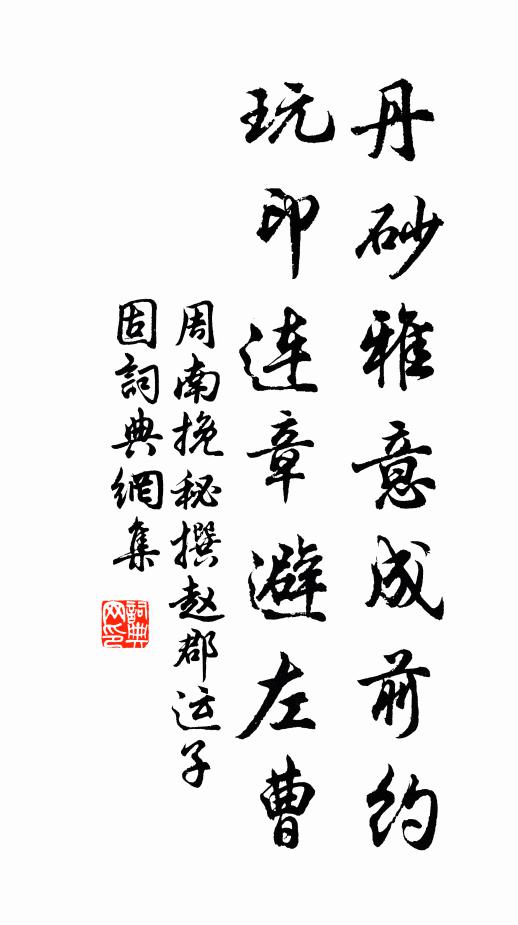 丹砂雅意成前约
玩印连章避左曹
周南挽秘撰赵郡运子
固詞典網集
詞典
网印